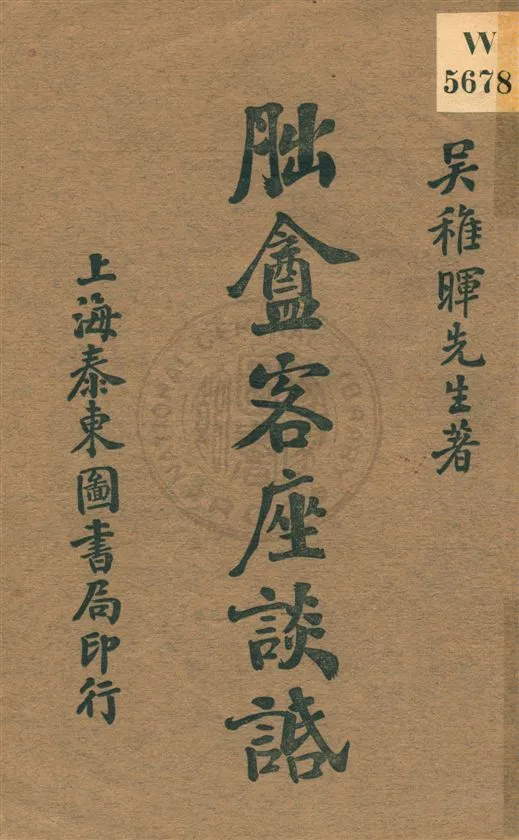 W
5678
吴稚暉先生著
朏盦客座談䛡
上海泰東圖書局印行